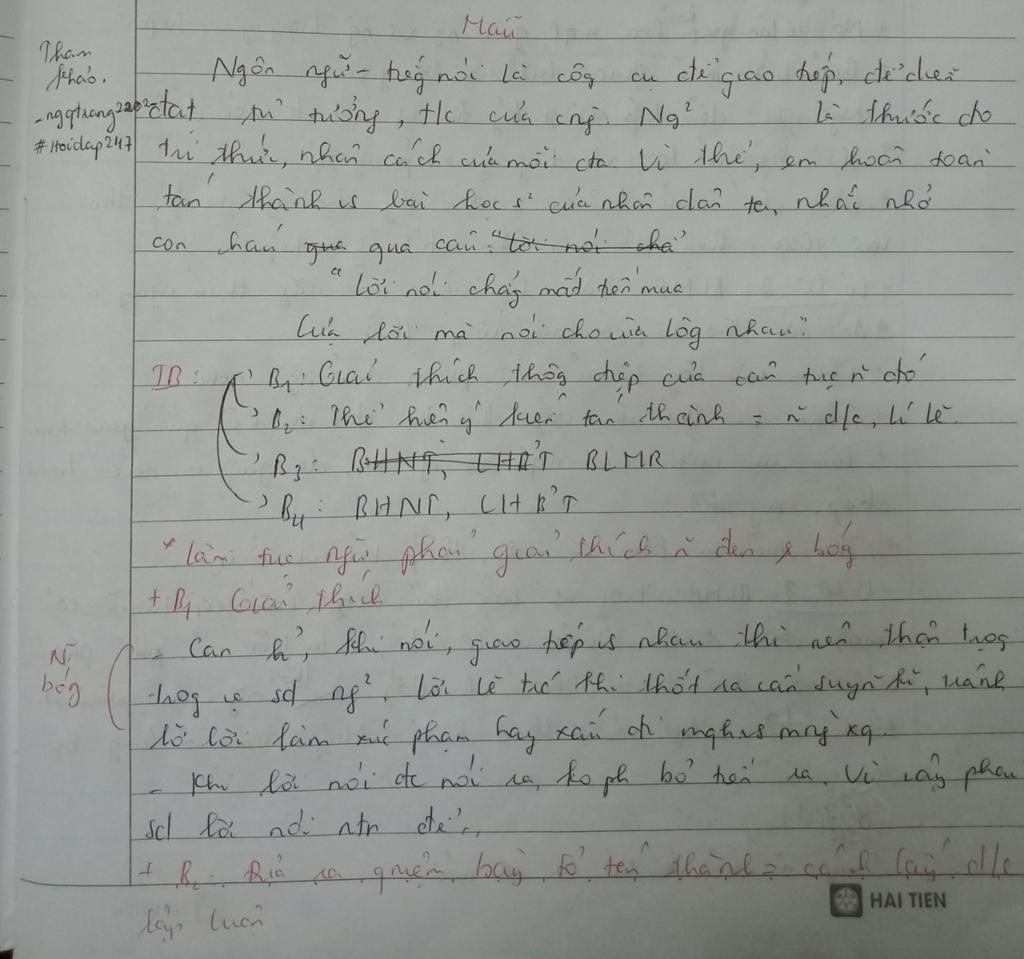 Mẫu
Tham
khảo.
-ngqtrang2202-
#Hoidap247
Ngôn ngữ - tiếng nói là côg cụ để giao tiếp, để diễn
đạt tư tưởng, t/c của cng. Ng² là thước đo
tri thức, nhân cách của mỗi cta. Vì thế, em hoàn toàn
tán thành vs bài học s² của nhân dân ta, nhắc nhở
con cháu qua qua câu: "lời nói chả"
"Lời nói chẳg mất tiền mua
Lựa lời mà nói cho vừa lòg nhau"
TB: B1: Giải thích thôg điệp của câu tục n đó
B2: Thể hiện ý kiến tán thành = n d/c, lí lẽ
B3: BHNT, LHBT BLMR
B4: BHNT, LHBT
* Làm tục ngữ phải giải thích n đen & bóg
+ B1: Giải thích
N
bóg
- Câu h', khi nói, giao tiếp vs nhau thì nên thận trọg
trog vc sd ng². Lời lẽ trc khi thốt ra cần suy kĩ, tránh
lỡ lời làm xúc phạm hay xấu đi mqh vs mng xq.
- Khi lời nói đc nói ra, ko ph bỏ tiền ra. Vì vậy phải
sd lời nói ntn để..
+ B2: Đưa ra quan bày tỏ tán thành = cách lấy d/c
lập luận
HAI TIEN